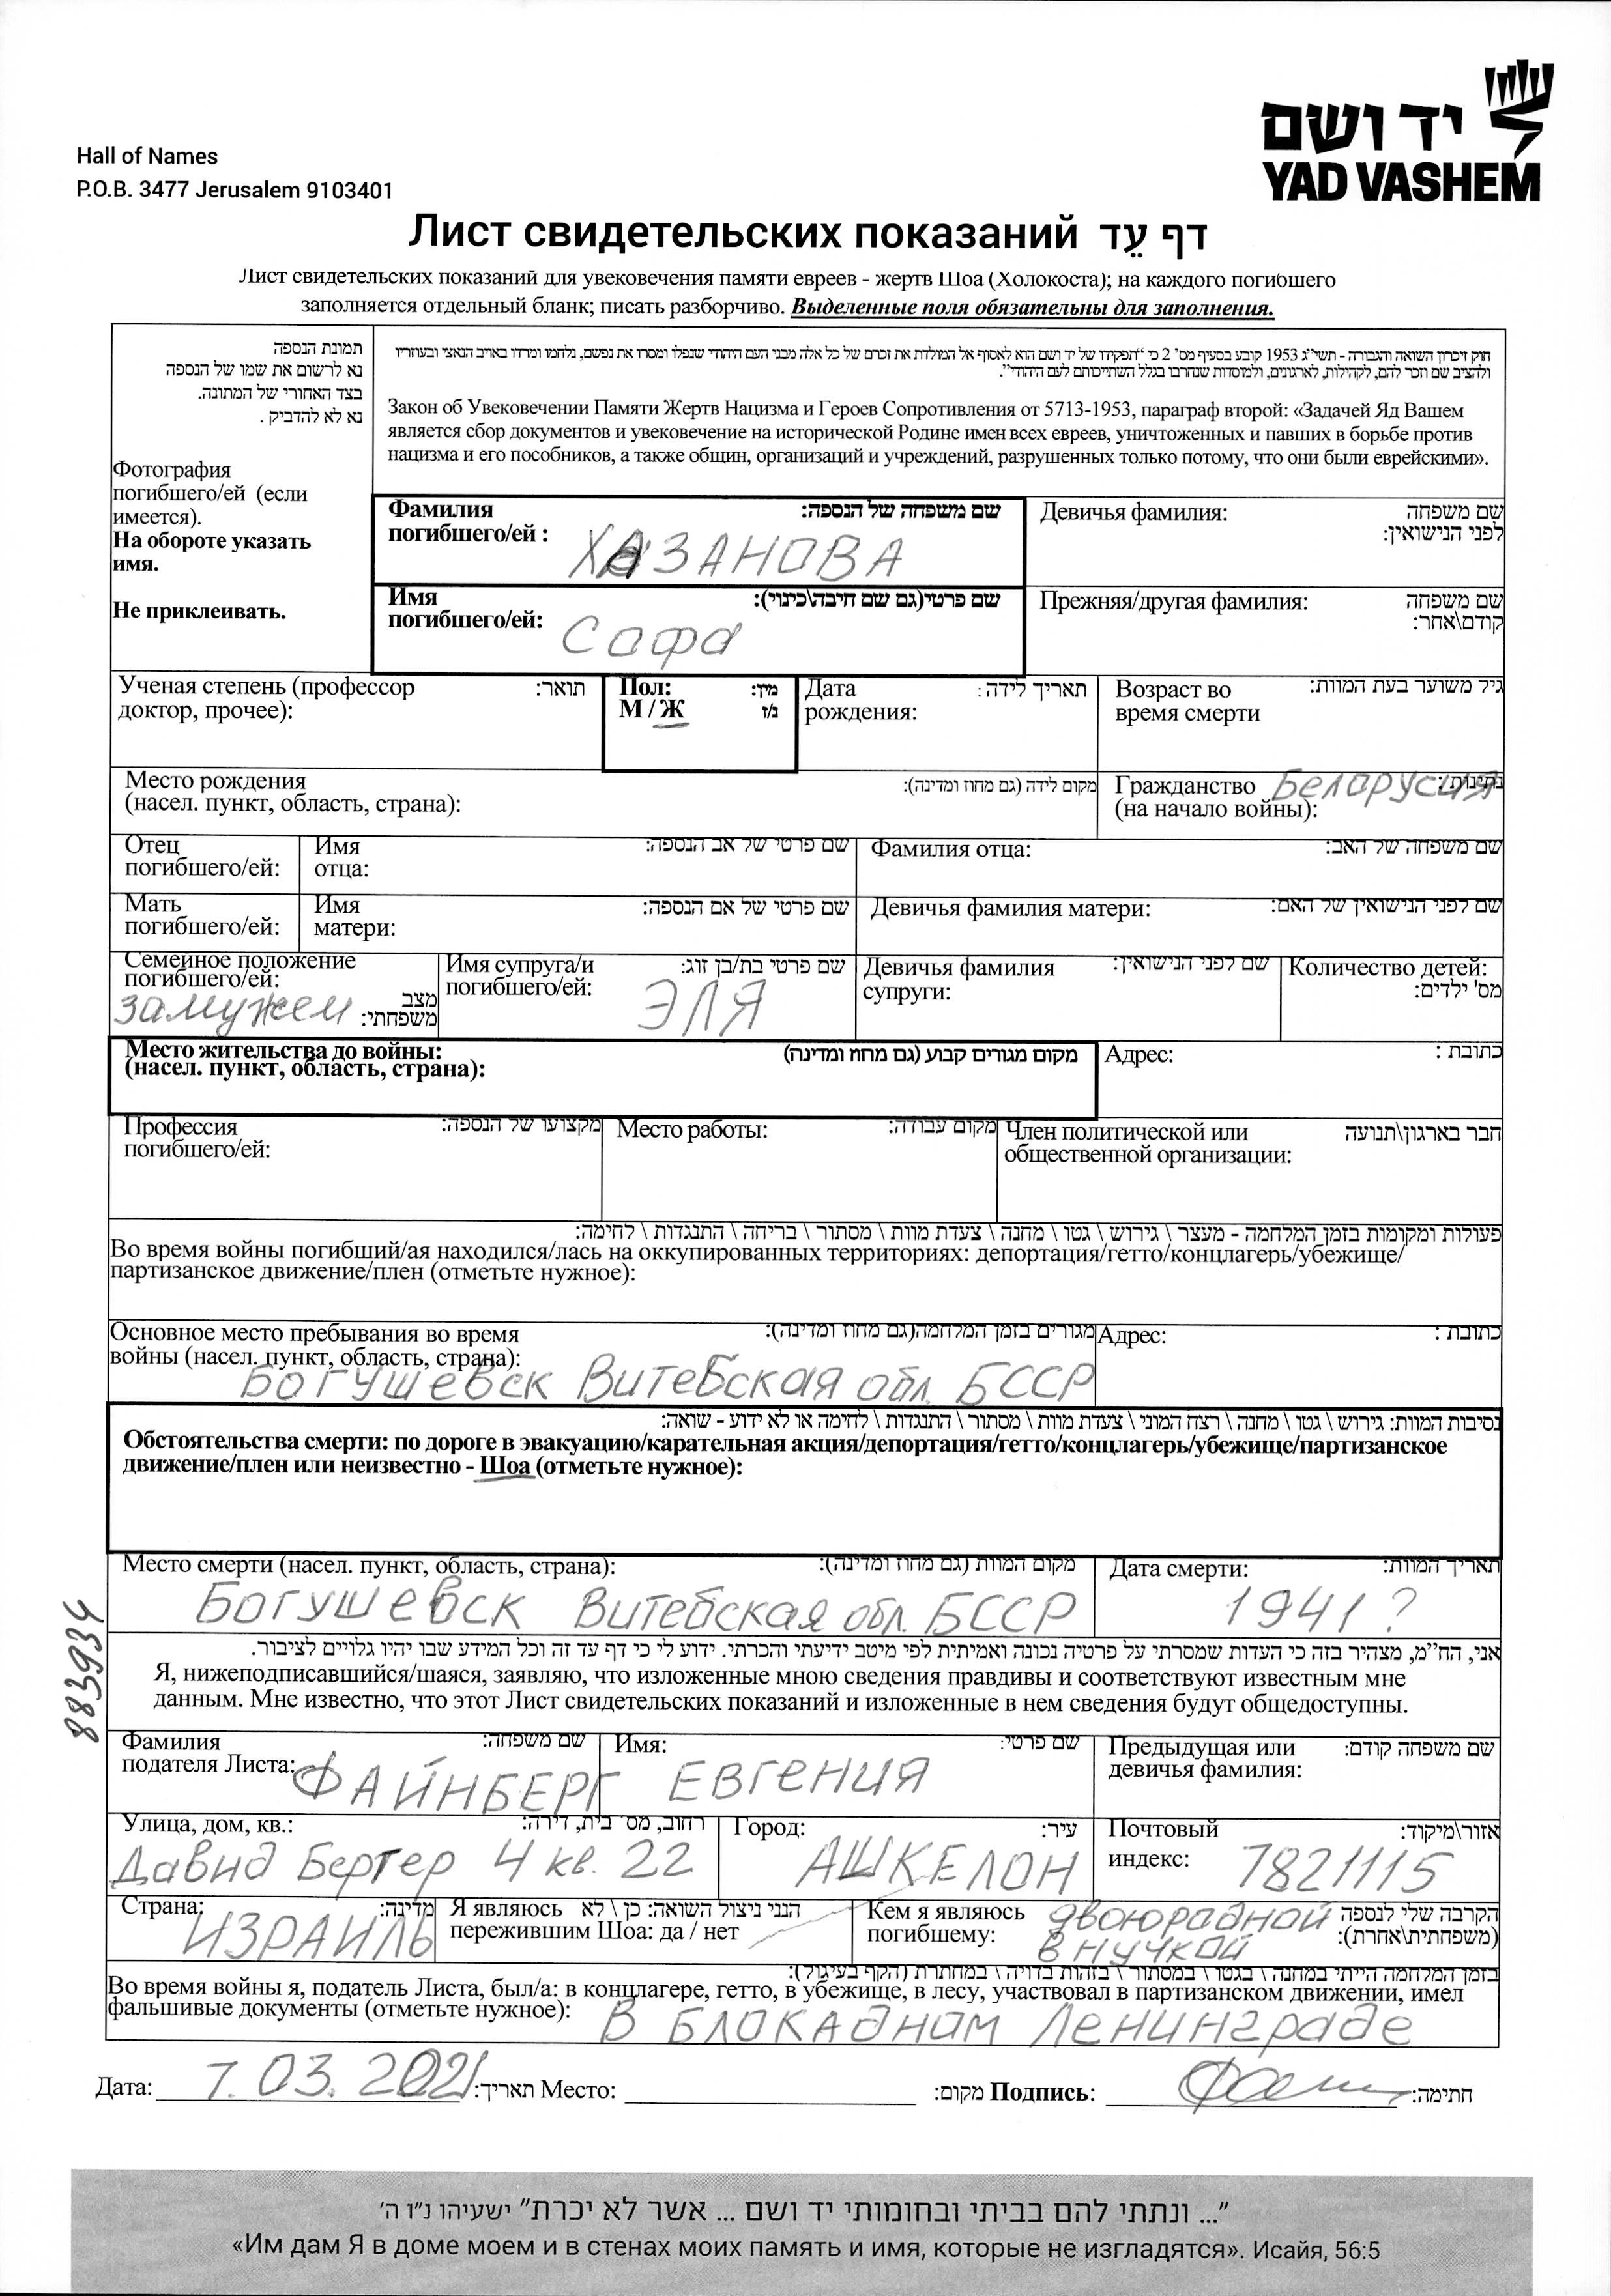 יד ושם
YAD VASHEM
Hall of Names
P.O.B. 3477 Jerusalem 9103401
Лист свидетельских показаний דף עֵד
Лист свидетельских показаний для увековечения памяти евреев - жертв Шоа (Холокоста); на каждого погибшего
заполняется отдельный бланк; писать разборчиво. Выделенные поля обязательны для заполнения.
תמונת הנספה
נא לרשום את שמו של הנספה
בצד האחורי של המתונה.
נא לא להדביק .
Фотография
погибшего/ей (если
имеется).
На обороте указать
имя.
Не приклеивать.
חוק זיכרון השואה והגבורה - תשי״ג 1953 קובע בסעיף מס׳ 2 כי ״תפקידו של יד ושם הוא לאסוף אל המולדת את זכרם של כל אלה מבני העם היהודי שנפלו ומסרו את נפשם, נלחמו ומרדו באויב הנאצי ובעוזריו
ולהציב שם וזכר להם, לקהילות, לארגונים, ולמוסדות שנחרבו בגלל השתייכותם לעם היהודי״.
Закон об Увековечении Памяти Жертв Нацизма и Героев Сопротивления от 5713-1953, параграф второй: «Задачей Яд Вашем
является сбор документов и увековечение на исторической Родине имен всех евреев, уничтоженных и павших в борьбе против
нацизма и его пособников, а также общин, организаций и учреждений, разрушенных только потому, что они были еврейскими».
Фамилия שם משפחה של הנספה:
погибшего/ей :
ХАЗАНОВА
Девичья фамилия: שם משפחה
לפני הנישואין:
Имя שם פרטי(גם שם חיבה\כינוי):
погибшего/ей:
Сафа
Прежняя/другая фамилия: שם משפחה
קודם\אחר:
Ученая степень (профессор תואר:
доктор, прочее):
Пол: מין:
М / Ж ז/נ
Дата תאריך לידה :
рождения:
Возраст во גיל משוער בעת המוות:
время смерти
Место рождения
(насел. пункт, область, страна): מקום לידה (גם מחוז ומדינה):
Гражданство Беларусия נתינות :
(на начало войны):
Отец
погибшего/ей:
Имя שם פרטי של אב הנספה:
отца:
Фамилия отца: שם משפחה של האב:
Мать
погибшего/ей:
Имя שם פרטי של אם הנספה:
матери:
Девичья фамилия матери: שם לפני הנישואין של האם:
Семейное положение
погибшего/ей:
замужем מצב
משפחתי:
Имя супруга/и שם פרטי בת/בן זוג:
погибшего/ей:
ЭЛЯ
Девичья фамилия שם לפני הנישואין:
супруги:
Количество детей:
מס' ילדים:
Место жительства до войны: מקום מגורים קבוע (גם מחוז ומדינה)
(насел. пункт, область, страна):
Адрес: כתובת :
Профессия מקצועו של הנספה:
погибшего/ей:
Место работы: מקום עבודה:
Член политической или חבר בארגון\תנועה
общественной организации:
פעולות ומקומות בזמן המלחמה - מעצר \ גירוש \ גטו \ מחנה \ צעדת מוות \ מסתור \ בריחה \ התנגדות \ לחימה:
Во время войны погибший/ая находился/лась на оккупированных территориях: депортация/гетто/концлагерь/убежище/
партизанское движение/плен (отметьте нужное):
Основное место пребывания во время מגורים בזמן המלחמה(גם מחוז ומדינה):
войны (насел. пункт, область, страна):
Богушевск Витебская обл. БССР
Адрес: כתובת :
נסיבות המוות: גירוש \ גטו \ מחנה \ רצח המוני \ צעדת מוות \ מסתור \ התנגדות \ לחימה או לא ידוע - שואה:
Обстоятельства смерти: по дороге в эвакуацию/карательная акция/депортация/гетто/концлагерь/убежище/партизанское
движение/плен или неизвестно - Шоа (отметьте нужное):
Место смерти (насел. пункт, область, страна): מקום המוות (גם מחוז ומדינה):
Богушевск Витебская обл. БССР
Дата смерти: תאריך המוות:
1941 ?
883934
אני, הח״מ, מצהיר בזה כי העדות שמסרתי על פרטיה נכונה ואמיתית לפי מיטב ידיעתי והכרתי. ידוע לי כי דף עד זה וכל המידע שבו יהיו גלויים לציבור.
Я, нижеподписавшийся/шаяся, заявляю, что изложенные мною сведения правдивы и соответствуют известным мне
данным. Мне известно, что этот Лист свидетельских показаний и изложенные в нем сведения будут общедоступны.
Фамилия שם משפחה:
подателя Листа: ФАЙНБЕРГ
Имя: שם פרטי:
ЕВГЕНИЯ
Предыдущая или שם משפחה קודם:
девичья фамилия:
Улица, дом, кв.: רחוב, מס׳ בית, דירה:
Давид Бергер 4 кв. 22
Город: עיר:
АШКЕЛОН
Почтовый אזור\מיקוד:
индекс: 7821115
Страна: מדינה:
ИЗРАИЛЬ
Я являюсь הנני ניצול השואה: כן \ לא
пережившим Шоа: да / нет
Кем я являюсь двоюрадной הקרבה שלי לנספה
погибшему: внучкой (משפחתית\אחרת):
בזמן המלחמה הייתי במחנה \ בגטו \ במסתור \ בזהות בדויה \ במחתרת (הקף בעיגול):
Во время войны я, податель Листа, был/а: в концлагере, гетто, в убежище, в лесу, участвовал в партизанском движении, имел
фальшивые документы (отметьте нужное): В БЛОКАДНОМ Ленинграде
Дата: 7.03.2021 תאריך: Место: מקום: Подпись: חתימה:
״... ונתתי להם בביתי ובחומותי יד ושם ... אשר לא יכרת״ ישעיהו נ״ו ה׳
«Им дам Я в доме моем и в стенах моих память и имя, которые не изгладятся». Исайя, 56:5